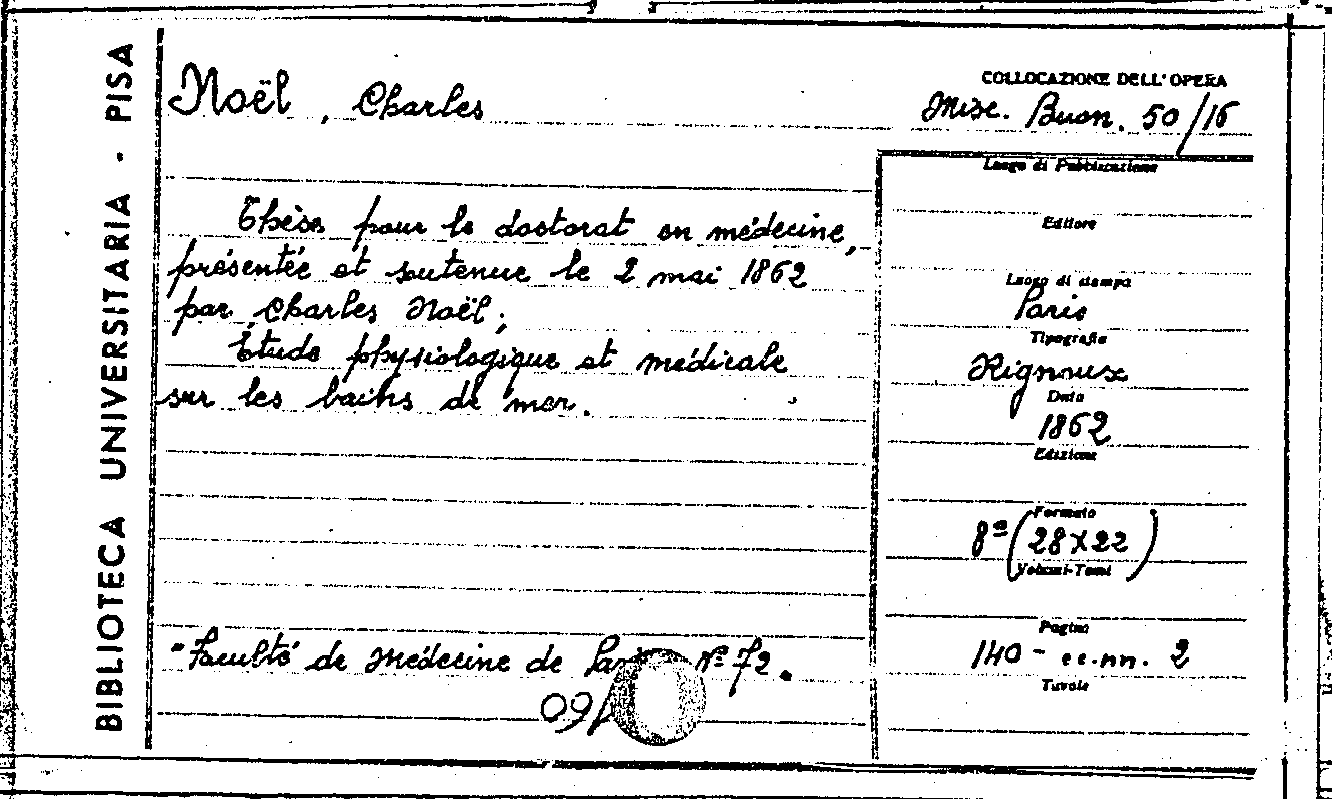 BIBLIOTECA UNIVERSITARIA - PISA
Noël, Charles
COLLOCAZIONE DELL'OPERA
Misc. Buon. 50/16
Thèse pour le doctorat en médecine,
présentée et soutenue le 2 mai 1862
par Charles Noël;
Étude physiologique et médicale
sur les bains de mer.
"Faculté de Médecine de Nº 72.
Luogo di Pubblicazione
Editore
Luogo di stampa
Paris
Tipografia
Rignoux
Data
1862
Edizione
Formato
8º (28x22)
Volumi-Tomi
Pagine
140 - cc.nn. 2
Tavole